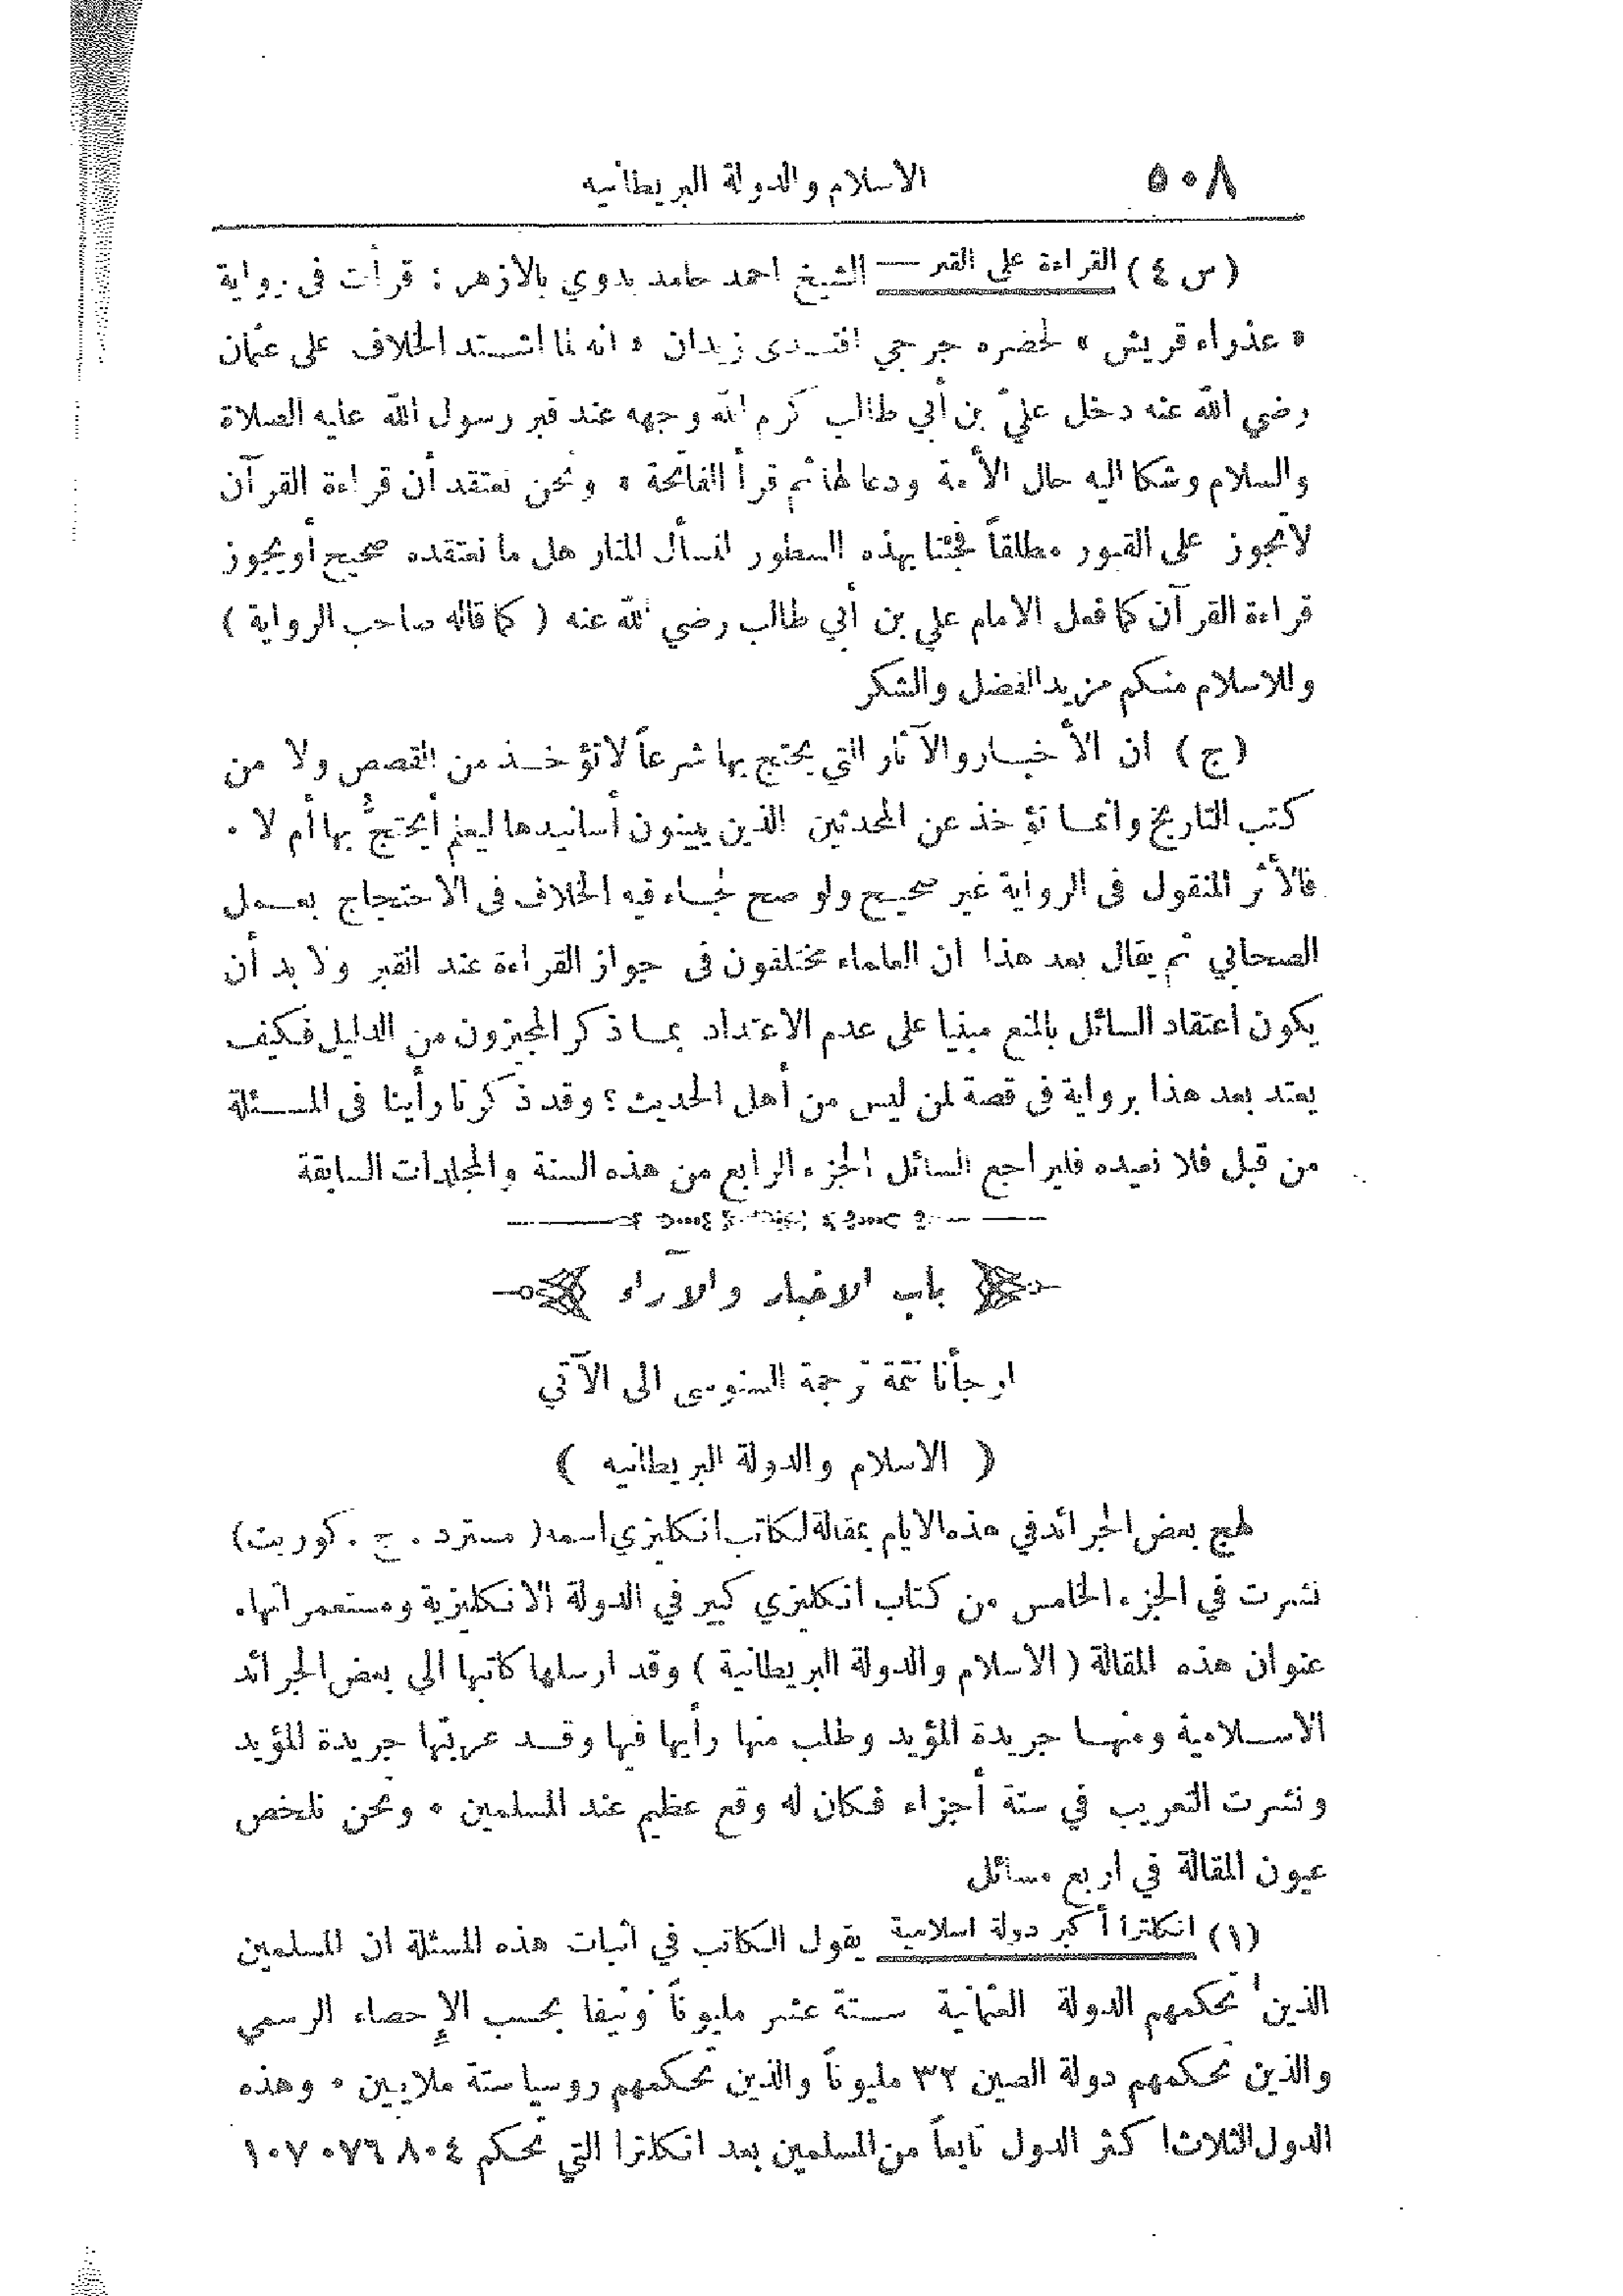 ٥٠٨ الاسلام والدولة البريطانيه
(س ٤) القراءة على القبر — الشيخ احمد حامد بدوي بالازهر : قرأت فى رواية
« عذراء قريش » لحضره جرجي افندى زيدان « انه لما اشتد الخلاف على عثمان
رضي الله عنه دخل عليّ بن أبي طالب كرم الله وجهه عند قبر رسول الله عليه الصلاة
والسلام وشكا اليه حال الأمة ودعا لها ثم قرأ الفاتحة » ونحن نعتقد أن قراءة القرآن
لا تجوز على القبور مطلقاً فجئنا بهذه السطور لنسأل المنار هل ما نعتقده صحيح أو يجوز
قراءة القرآن كما فعل الامام علي بن أبي طالب رضي الله عنه ( كما قاله صاحب الرواية )
وللاسلام منكم مزيد الفضل والشكر
(ج) ان الأخبار والآثار التي يحتج بها شرعاً لا تؤخذ من القصص ولا من
كتب التاريخ وانما تؤخذ عن المحدثين الذين يبينون أسانيدها ليعلم أيحتجُّ بها أم لا .
فالأثر المنقول فى الرواية غير صحيح ولو صح لجاء فيه الخلاف فى الاحتجاج بعمل
الصحابي ثم يقال بعد هذا ان العلماء مختلفون فى جواز القراءة عند القبر ولا بد أن
يكون اعتقاد السائل بالمنع مبنيا على عدم الاعتداد بما ذكر المجيزون من الدليل فكيف
يعتد بعد هذا برواية فى قصة لمن ليس من أهل الحديث ؟ وقد ذكرنا رأينا فى المسئلة
من قبل فلا نعيده فليراجع السائل الجزء الرابع من هذه السنة والمجلدات السابقة
باب الاخبار والآراء
ارجأنا تتمة ترجمة السنوسى الى الآتي
( الاسلام والدولة البريطانيه )
لهج بعض الجرائد في هذه الايام بمقالة لكاتب انكليزي اسمه ( مستر د . ج . كوربت)
نشرت في الجزء الخامس من كتاب انكليزي كبير في الدولة الانكليزية ومستعمراتها.
عنوان هذه المقالة ( الاسلام والدولة البريطانية ) وقد ارسلها كاتبها الي بعض الجرائد
الاسلامية ومنها جريدة المؤيد وطلب منها رأيها فيها وقد عربتها جريدة المؤيد
ونشرت التعريب في ستة أجزاء فكان له وقع عظيم عند المسلمين . ونحن نلخص
عيون المقالة في اربع مسائل
(١) انكلترا أكبر دولة اسلامية يقول الكاتب في اثبات هذه المسئلة ان المسلمين
الذين تحكمهم الدولة العثمانية ستة عشر مليوناً ونيفا بحسب الإحصاء الرسمي
والذين تحكمهم دولة الصين ٣٢ مليوناً والذين تحكمهم روسيا ستة ملايين . وهذه
الدول الثلاث اكثر الدول تابعاً من المسلمين بعد انكلترا التي تحكم ١٠٧٠٧٦٨٠٤